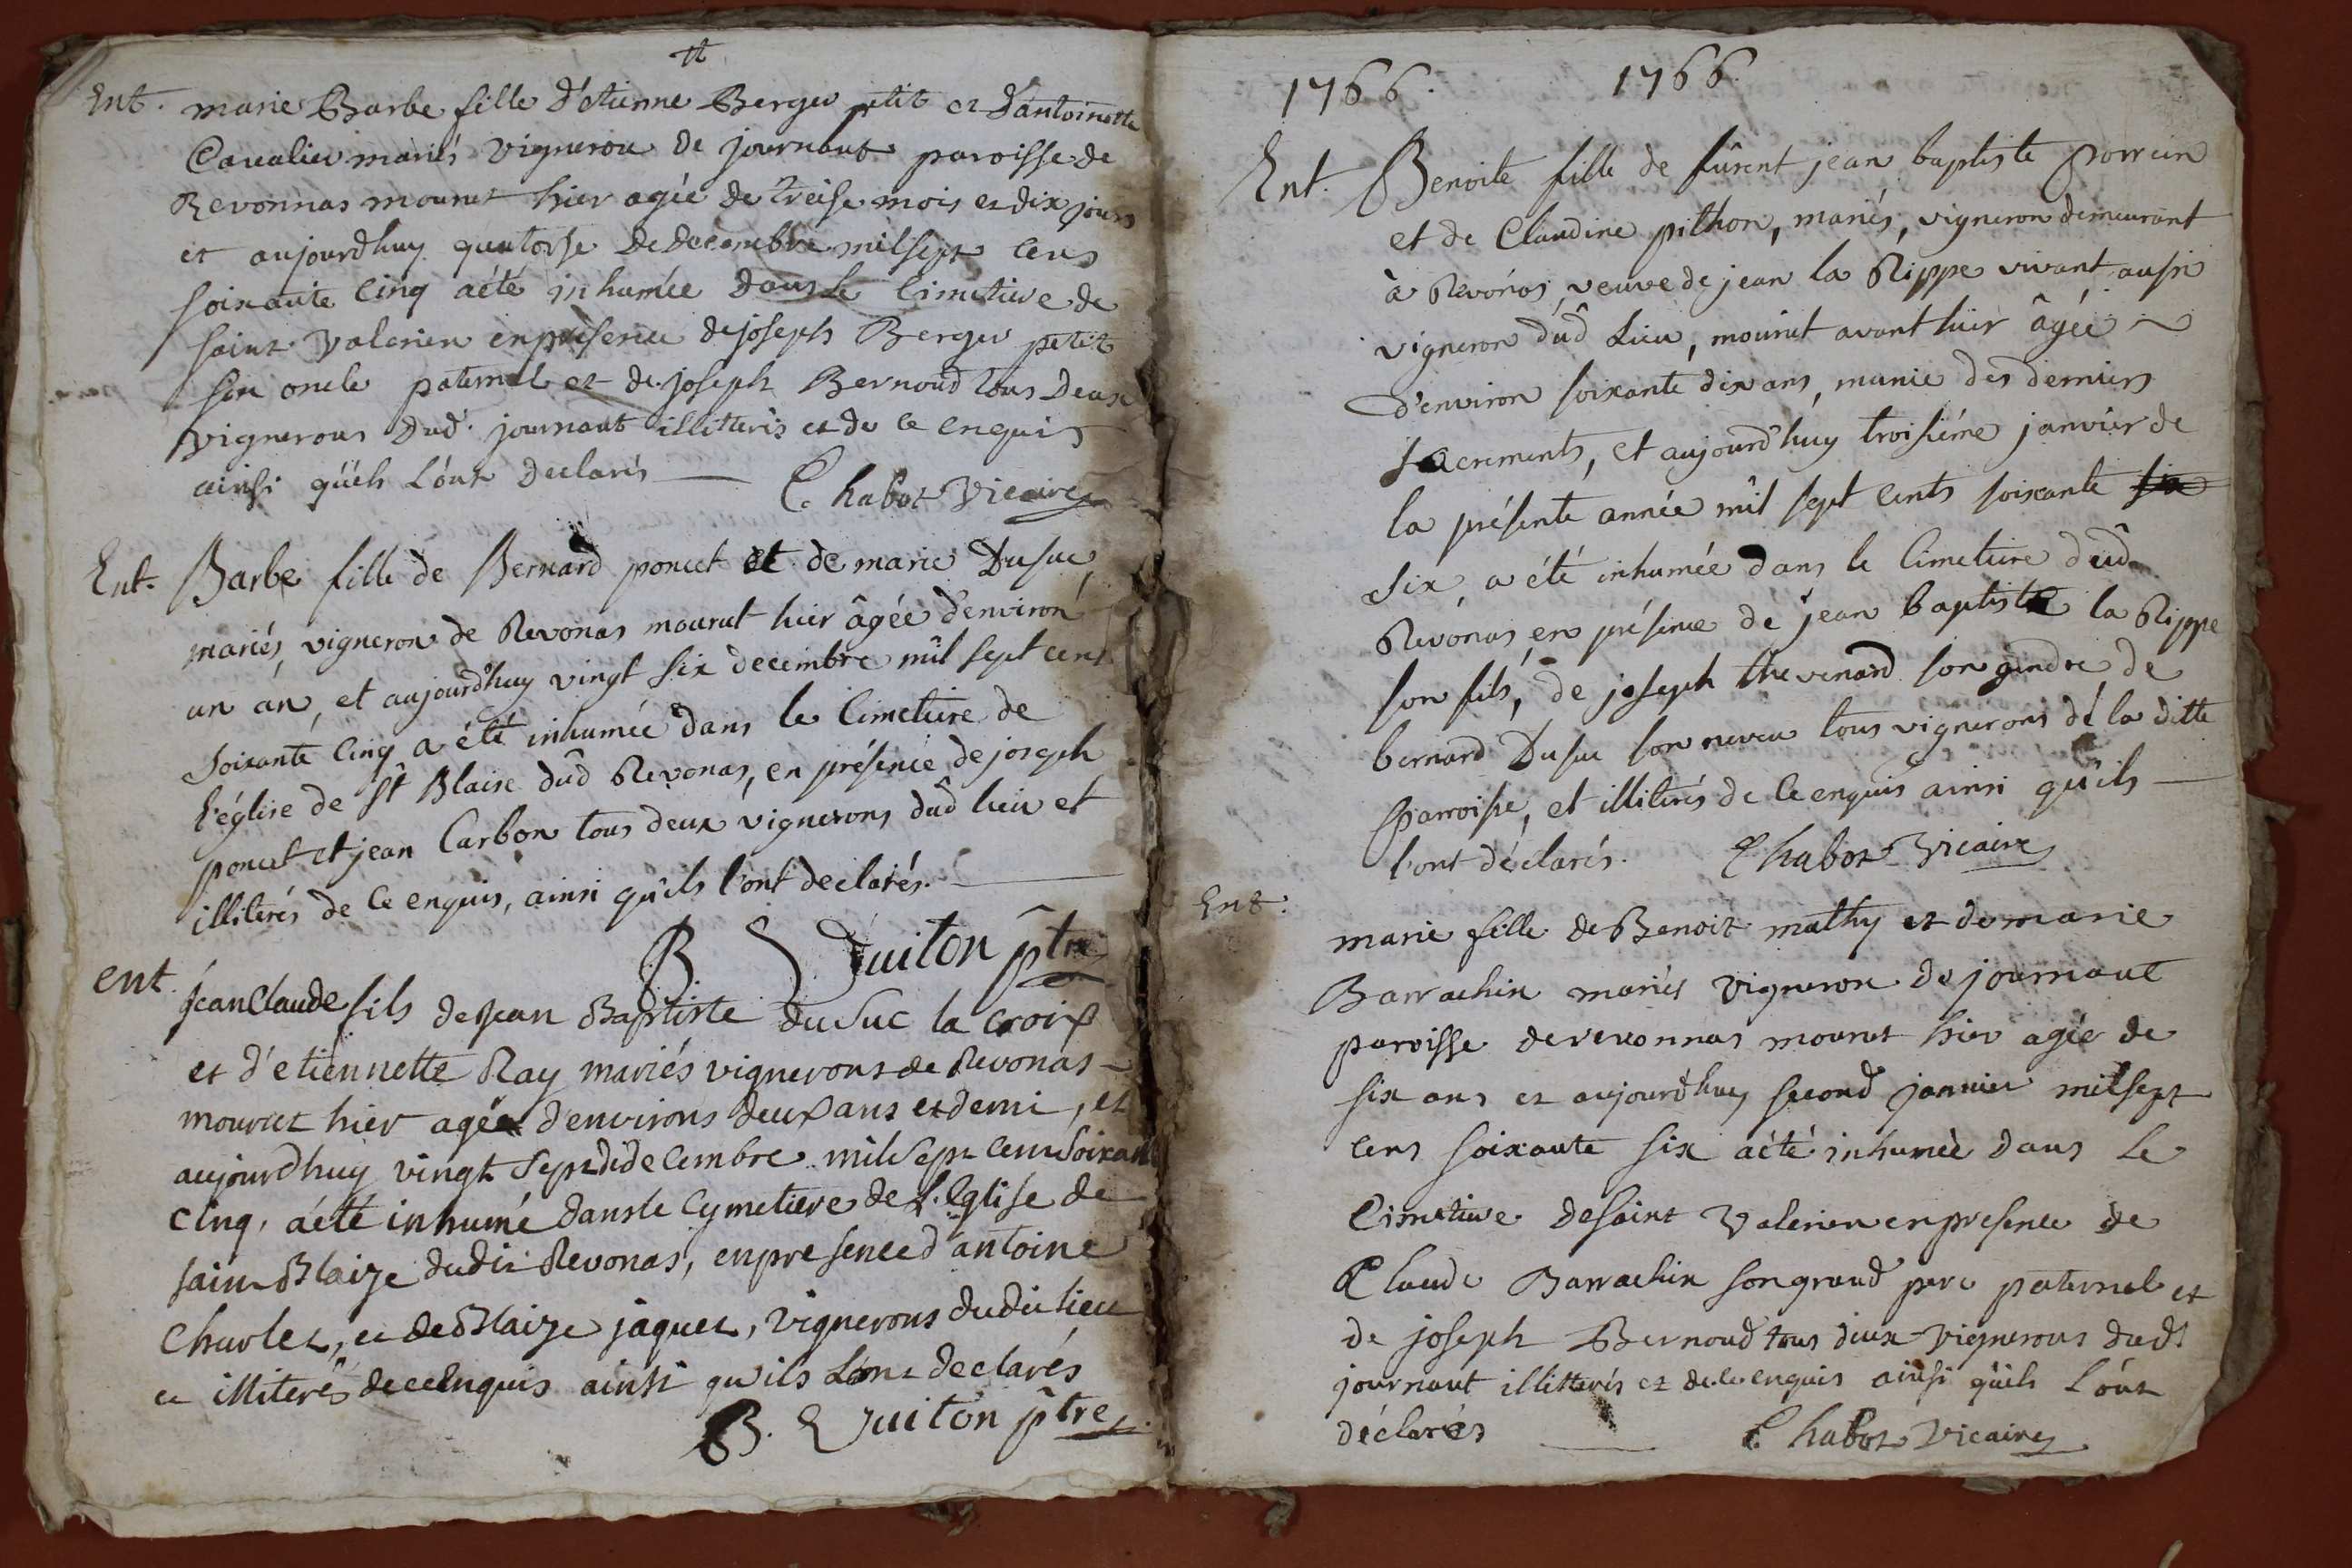 Ent. marie Barbe fille d'etienne Berger petit et d'antoinette
Cavalier mariés vigneron de journans paroisse de
Revonnas mourut hier agée de treise mois et dix jours
et aujourdhuy quatorse de decembre mil sept cens
soixante cinq a été inhumée dans le cimetiere de
saint valerien en presence de joseph Berger petit
son oncle paternel et de joseph Bernoud tous deux
vignerons dud. journant illitterés et de ce enquis
ainsi qu'ils l'ont declarés C. habot vicaire
Ent. Barbe fille de Bernard poncet et de marie Dusuc,
mariés, vigneron de Revonas mourut hier âgée d'environ
un an, et aujourd'huy vingt six decembre mil sept cent
soixante cinq a été inhumée dans le Cimetiere de
l'église de St Blaise dud Revonas, en présence de joseph
poncet et jean Carbon tous deux vignerons dud lieu et
illiterés de ce enquis, ainsi qu'ils l'ont declarés.
B. Quiton ptre
ent. jean Claude fils de jean Baptiste du suc la croix
et d'etiennette Ray mariés vignerons de Revonas
mourut hier agée d'environs deux ans et demi, et
aujourdhuy vingt sept de decembre mil sept cens soixante
cinq, a été inhumé dans le Cymetiere de l'Eglise de
saint Blaize dudit Revonas, en presence d'antoine
Charlet, et de Blaize jaquet, vignerons dudit lieu
et illiterés de ce enquis ainsi qu'ils l'ont declarés
B. Quiton ptre
1766. 1766
Ent. Benoite fille de fûrent jean baptiste Porrin
et de Claudine pithon, mariés, vigneron demeurant
à Revonas, veuve de jean la Rippe vivant aussi
vigneron dud Lieu, mourut avant hier âgée
d'environ soixante dix ans, munie des derniers
sacrements, et aujourd'huy troisiéme janvier de
la présente année mil sept cents soixante six
six, a été inhumée dans le Cimetiere dud
Revonas, en présence de jean baptiste la Rippe
son fils, de joseph thevenard son gendre, de
bernard Dusuc son neveu tous vignerons dé la ditte
Parroisse, et illiterés de ce enquis ainsi qu'ils
l'ont déclarés. Chabot Vicaire
Ent. marie fille de Benoit mathy et de marie
Barrachin mariés vigneron de journant
paroisse de revonnas mourut hier agée de
six ans et aujourdhuy second janvier mil sept
cens soixante six a été inhumée dans le
Cimetiere de saint valerien en presence de
Claude Barrachin son grand pere paternel et
de joseph Bernoud tous deux vignerons dud.
journant illitterés et de ce enquis ainsi qu'ils l'ont
déclarés C. habot vicaire